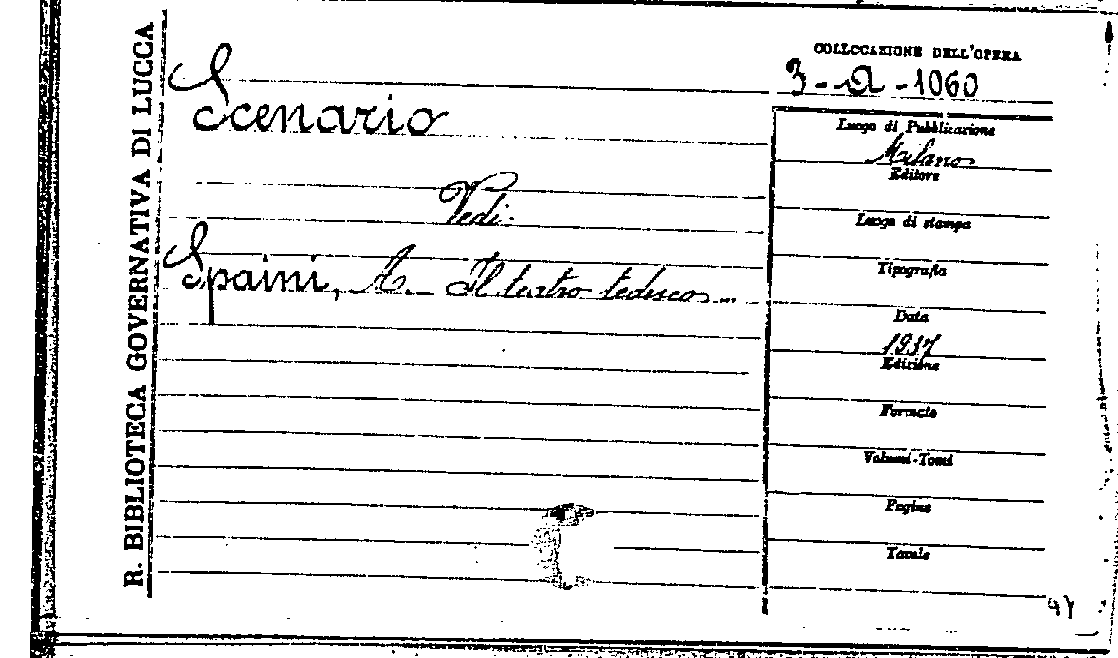 R. BIBLIOTECA GOVERNATIVA DI LUCCA
COLLOCAZIONE DELL'OPERA
3-a-1060
Scenario
Vedi.
Spaini, A. - Il teatro tedesco...
Luogo di Pubblicazione
Milano
Editore
Luogo di stampa
Tipografia
Data
1937
Edizione
Formato
Volumi-Tomi
Pagine
Tavole